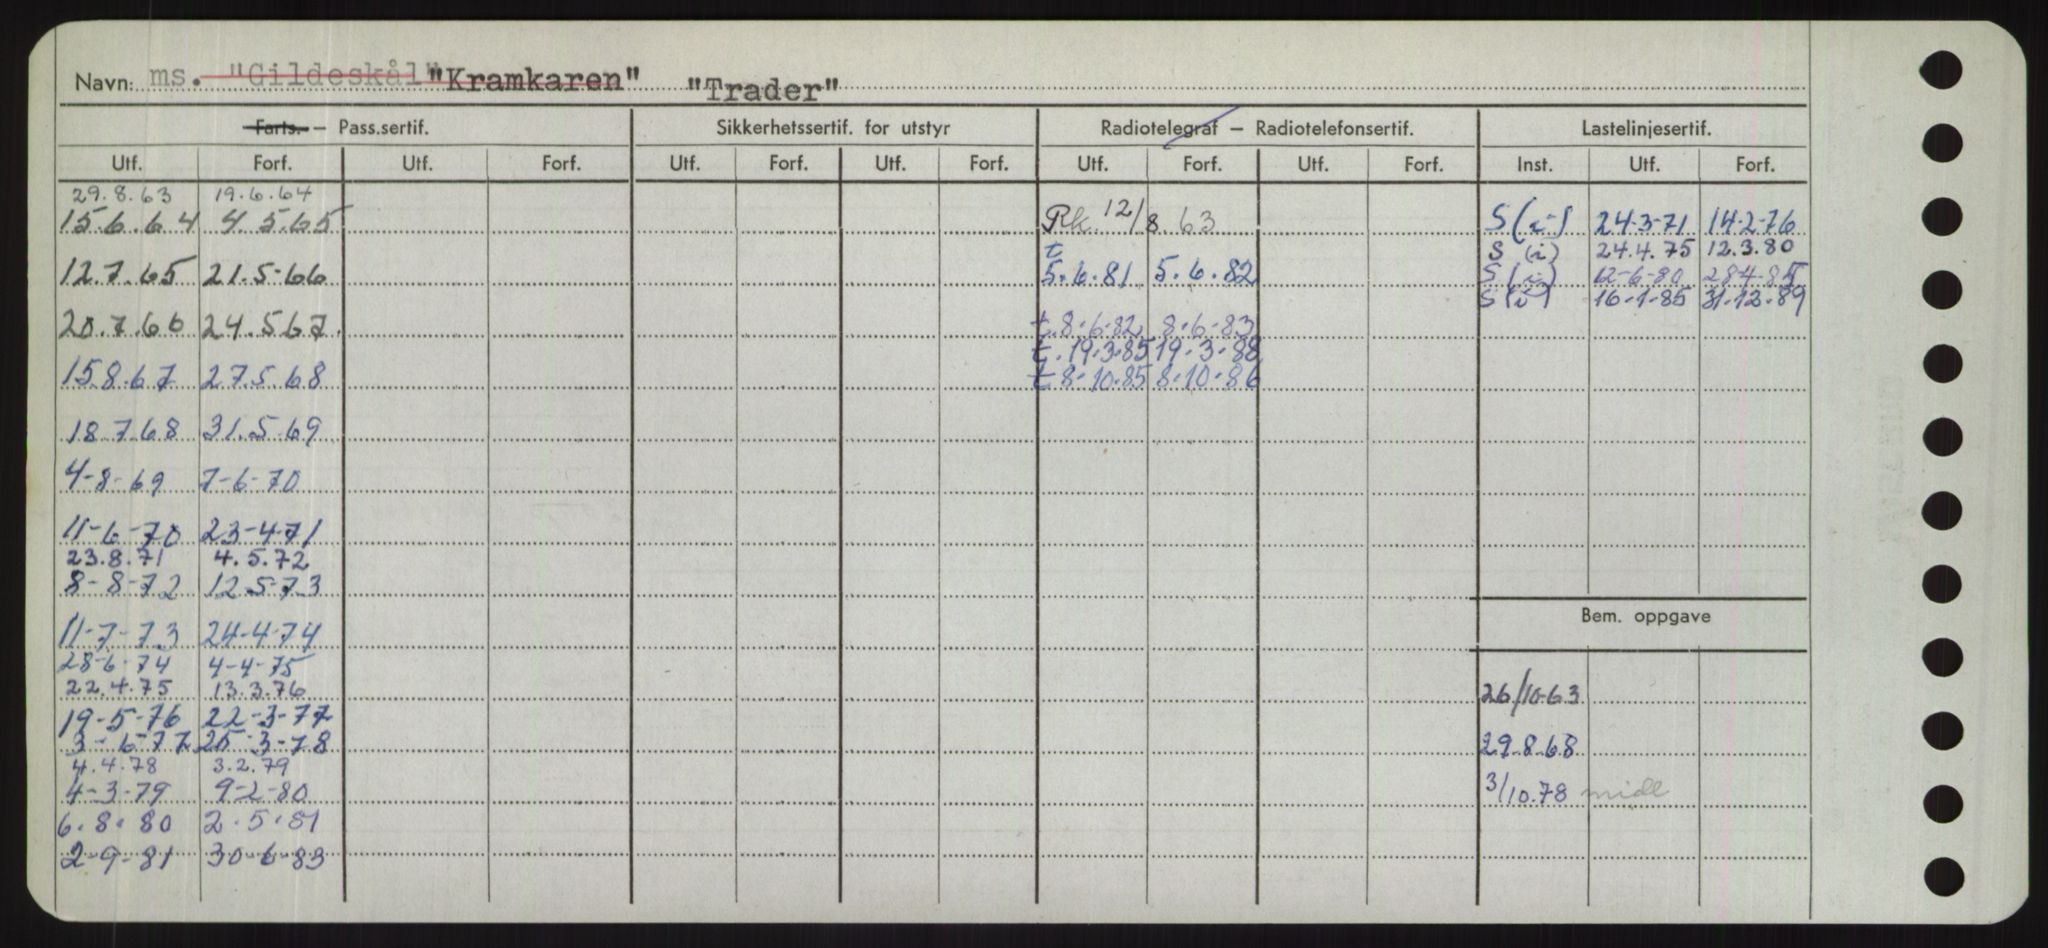 Navn: ms. "Gildeskål" "Kramkaren" "Trader"
Farts. – Pass.sertif. Sikkerhetssertif. for utstyr Radiotelegraf – Radiotelefonsertif. Lastelinjesertif.
Utf. Forf. Utf. Forf. Utf. Forf. Utf. Forf. Utf. Forf. Utf. Forf. Inst. Utf. Forf.
29.8.63 19.6.64
15.6.64 4.5.65 Rk. 12/8.63 S (i) 24-3-71 14-2-76
t S (i) 24.4.75 12.3.80
12.7.65 21.5-66 5.6.81 5.6.82 S (i) 12-6-80 28-4-85
S (i) 16-1-85 31-12-89
20.7.66 24.567. t. 8-6-82 8-6-83
t. 19-3-85 19-3-88
15.8.67 27.5.68 t. 8-10-85 8-10-86
18.7.68 31.5.69
4-8-69 7-6-70
11-6-70 23-4-71
23.8.71 4.5.72
8-8-72 12.5-73
Bem. oppgave
11-7-73 24-4-74
28-6-74 4-4-75
22.4.75 13.3.76 26/10-63
19-5-76 22-3-77
3-6-77 25-3-78 29.8.68
4.4.78 3.2.79
4-3-79 9-2-80 3/10.78 midl
6.8.80 2.5.81
2-9-81 30-6-83